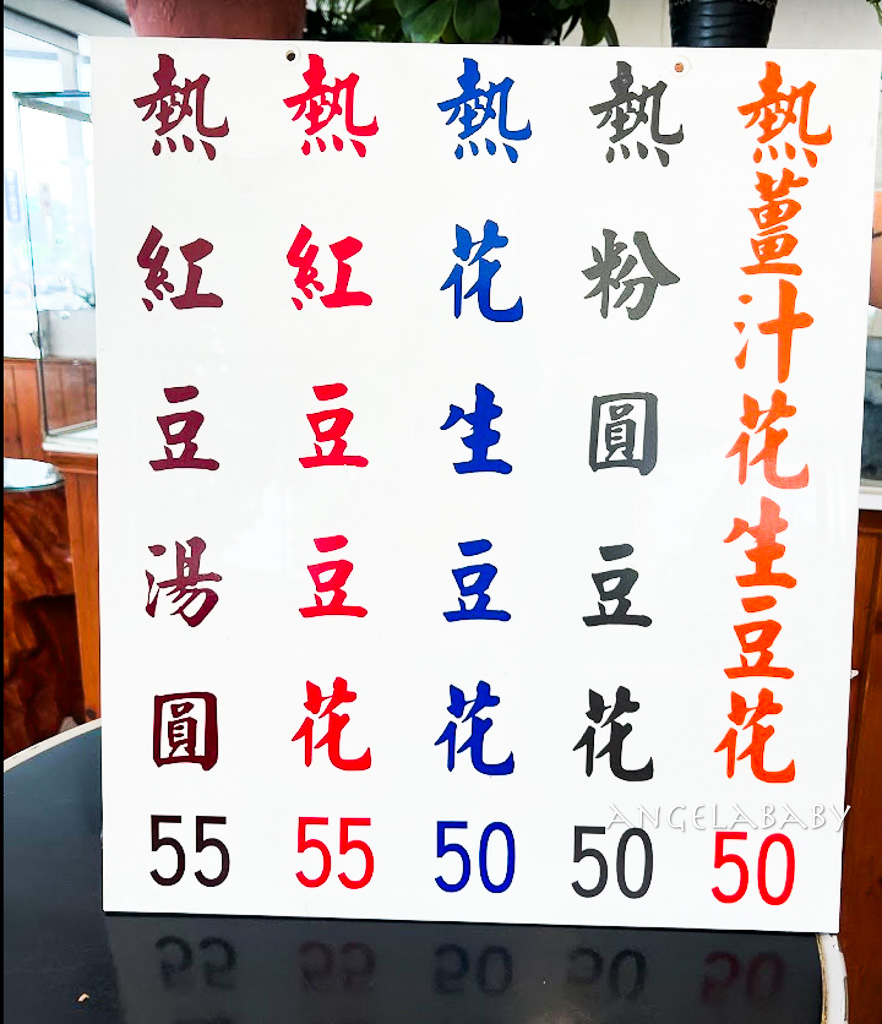 熱薑汁花生豆花
50
熱粉圓豆花
50
熱花生豆花
50
熱紅豆豆花
55
熱紅豆湯圓
55
ANGELABABY